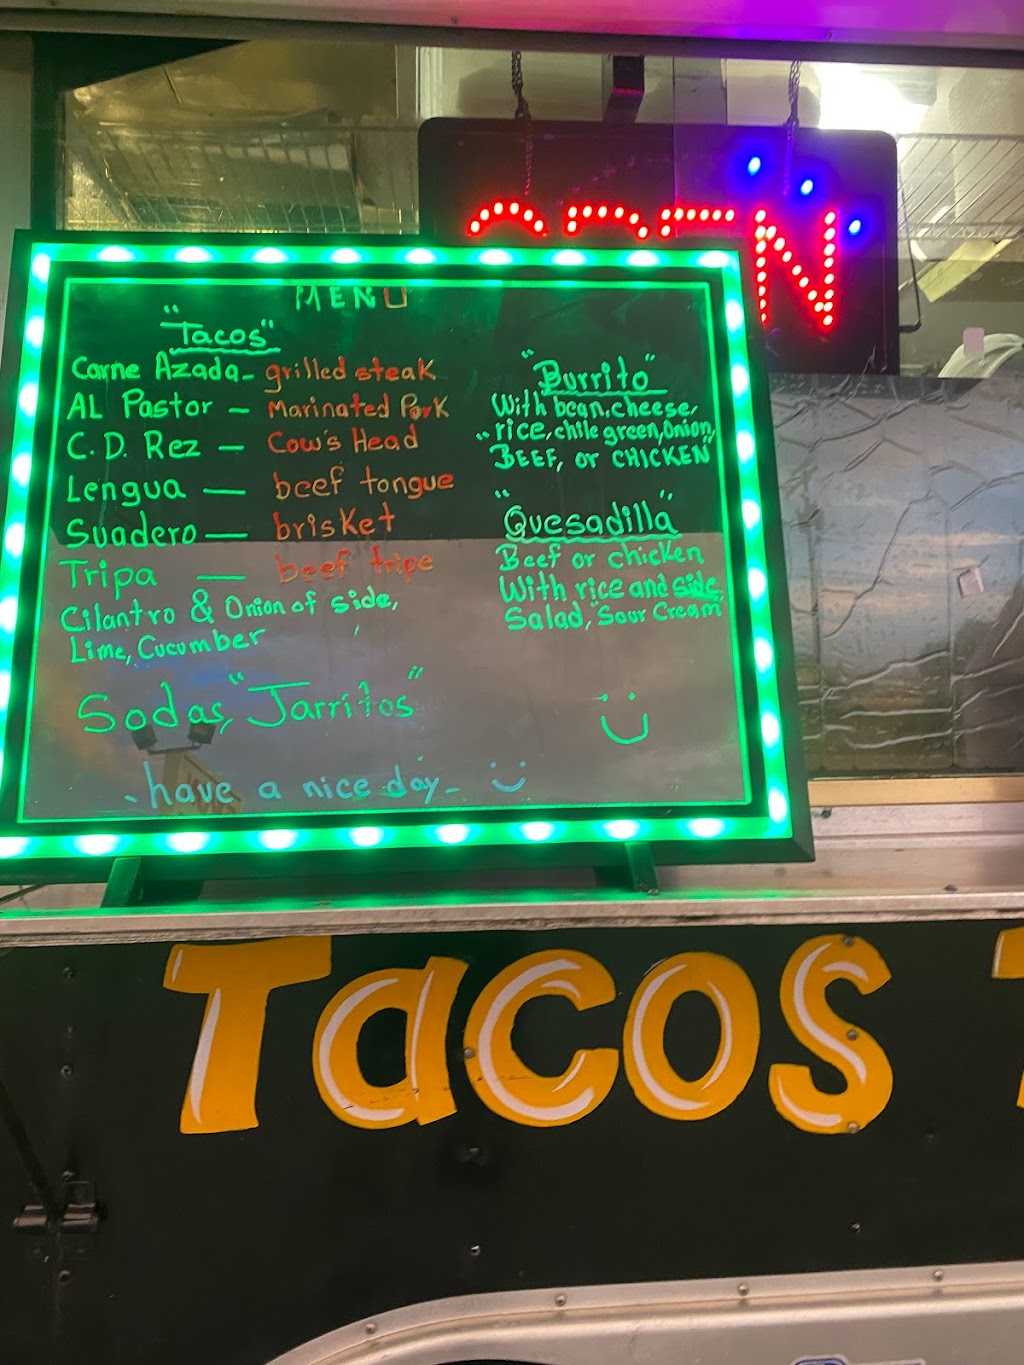 OPEN
MENU
"Tacos"
Carne Azada - grilled steak
AL Pastor - Marinated Pork
C.D. Rez - Cow's Head
Lengua - beef tongue
Suadero - brisket
Tripa - beef tripe
Cilantro & Onion of side,
Lime, Cucumber
Sodas, "Jarritos"
"Burrito"
With bean, cheese,
"rice, chile green, Onion,
BEEF, or CHICKEN"
"Quesadilla"
Beef or chicken
With rice and side,
Salad, "Sour Cream"
- have a nice day -
TACOS